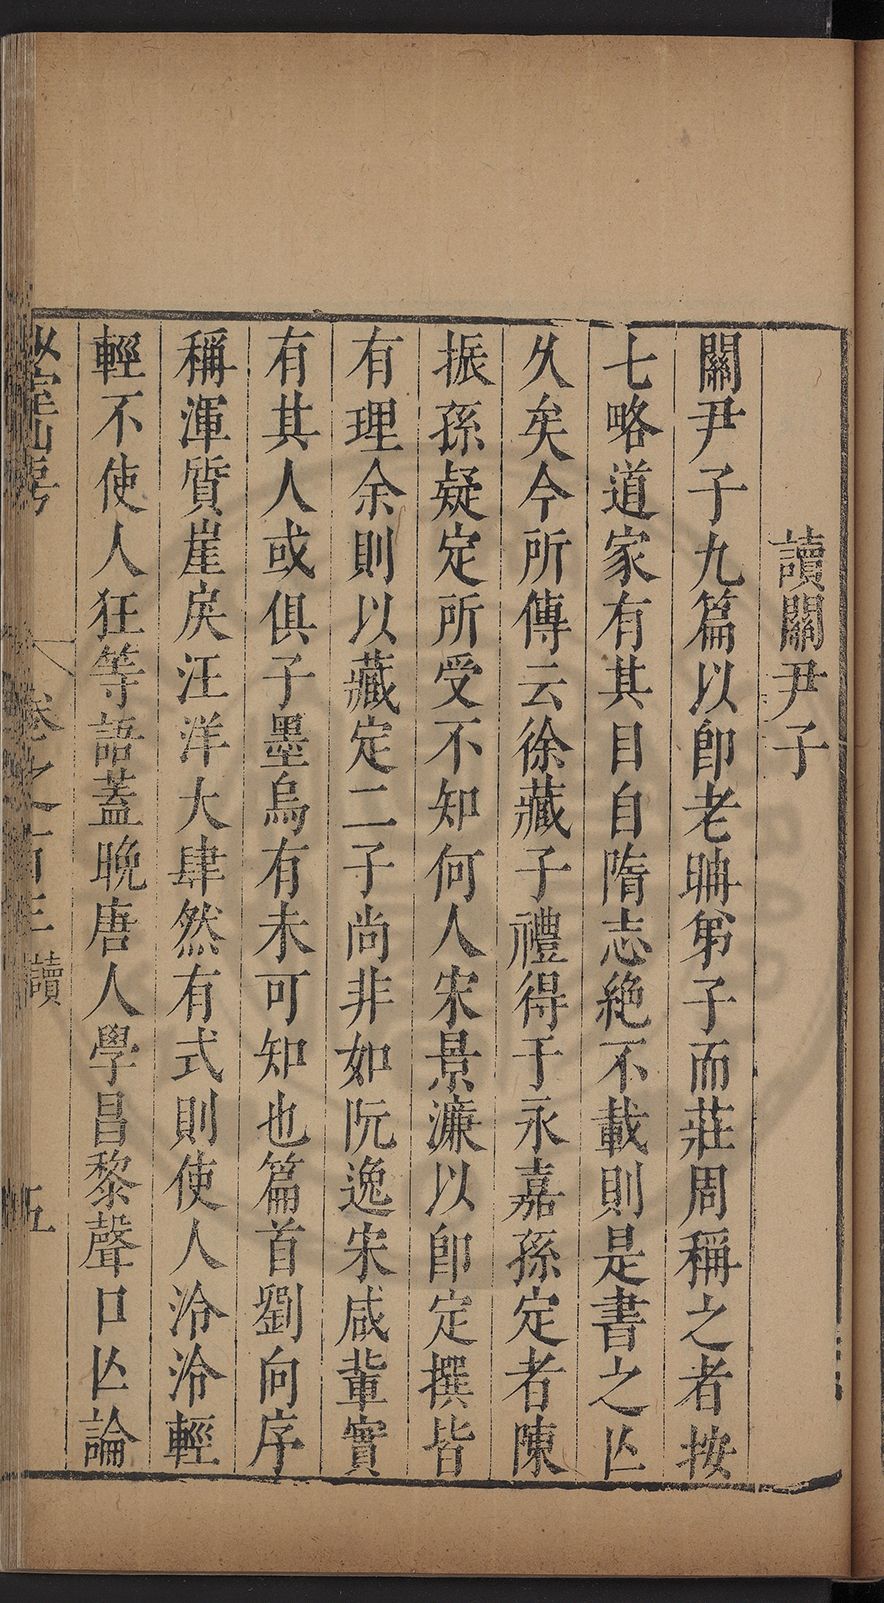 讀關尹子
關尹子九篇以卽老聃弟子而莊周稱之者按
七略道家有其目自隋志絶不載則是書之亾
久矣今所傳云徐藏子禮得于永嘉孫定者陳
振孫疑定所受不知何人宋景濂以卽定撰皆
有理余則以藏定二子尚非如阮逸宋咸輩實
有其人或俱子墨烏有未可知也篇首劉向序
稱渾質崖戾汪洋大肆然有式則使人泠泠輕
輕不使人狂等語蓋晚唐人學昌黎聲口亾論
山房
卷之百三 讀
五